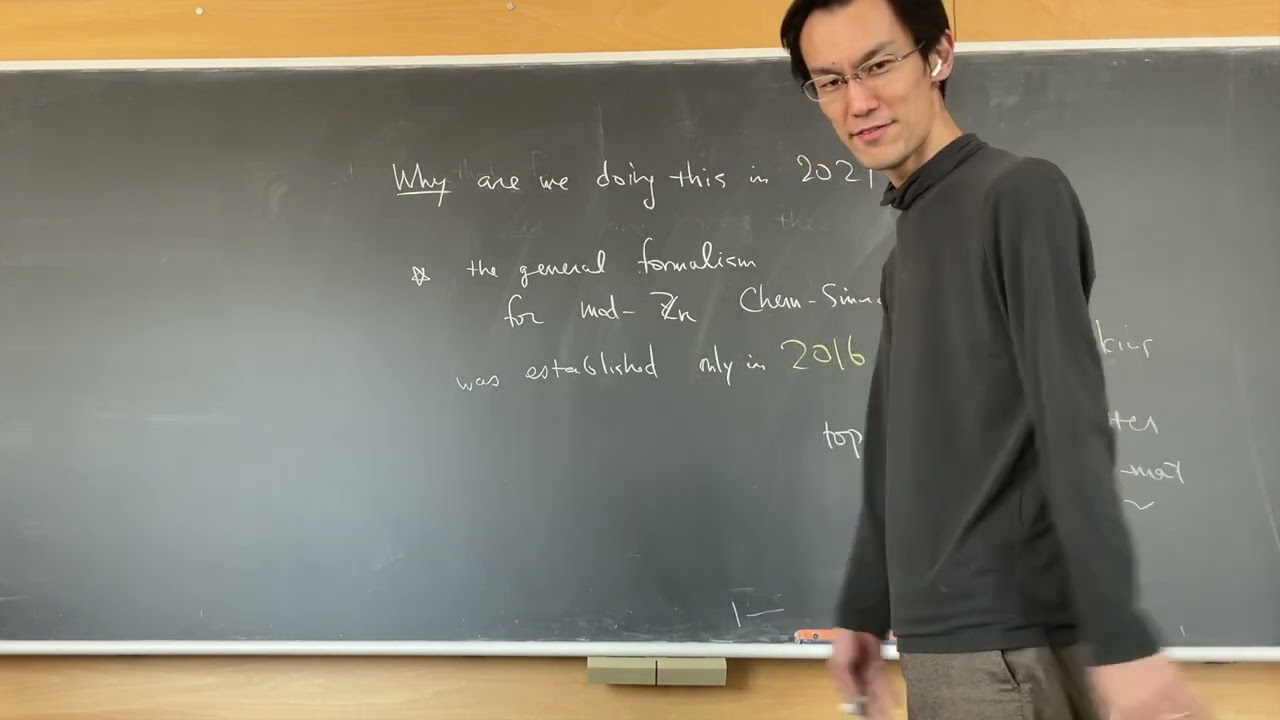 Why are we doing this in 2021
☆ the general formalism
for mod-Zn Chern-Simo
was established only in 2016
top